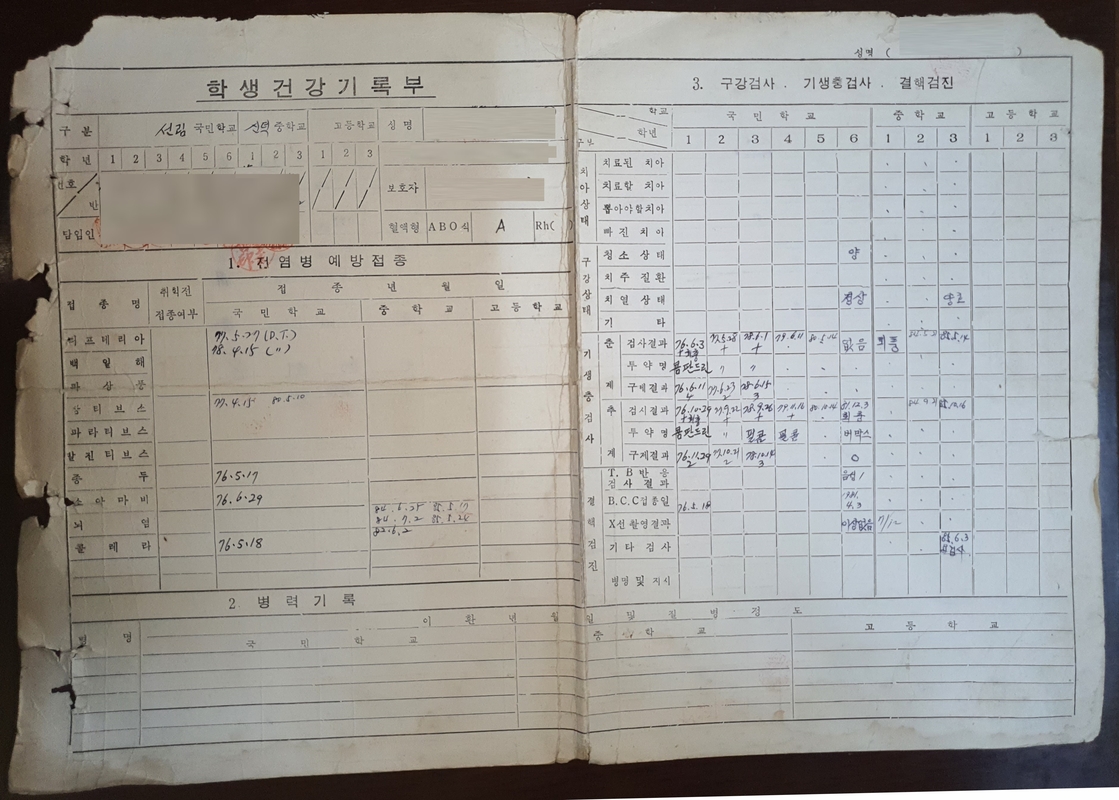 성명 ( )
학생건강기록부
구분 선림 국민학교 신덕 중학교 고등학교 성명
학년 1 2 3 4 5 6 1 2 3 1 2 3
번호
반
보호자
담임인
혈액형 ABO식 A Rh( )
1. 전염병 예방접종
접종명 취학전 접종여부 접종년월일
국민학교 중학교 고등학교
디프테리아 77.5.27(D.T.)
78.4.15 (〃)
백일해
파상풍
장티브스 77.4.15 80.5.10
파라티브스
발진티브스
종두 76.5.17
소아마비 76.6.29
뇌염 84.6.25 85.5.17
84.7.2 85.5.24
콜레라 76.5.18
2. 병력기록
병명 이환년월일 및 질병정도
국민학교 중학교 고등학교
3. 구강검사 . 기생충검사 . 결핵검진
학교 국민학교 중학교 고등학교
학년
구분 1 2 3 4 5 6 1 2 3 1 2 3
치아상태 치료된 치아
치료할 치아
뽑아야할치아
빠진 치아
구강상태 청소 상태 양
치주 질환
치열 상태 정상 양호
기타
기생충검사 춘계 검사결과 76.6.3 77.5.28 78.6.1 79.6.11 80.5.14 없음 85.5.14
+ + +
투약명 〃 〃
구제결과 76.6.11 77.6.23 78.6.15
4 2 3
추계 검사결과 76.10.29 77.9.22 78.9.26 79.11.16 80.10.14 81.12.3 85.10.16
투약명 〃
구제결과 76.11.29 77.10.21 78.10.14 0
2 2 3
결핵검진 T.B 반응 검사 결과
B.C.G접종일 76.5.18
X선 촬영결과 이상없음 7/12
기타 검사
병명 및 지시